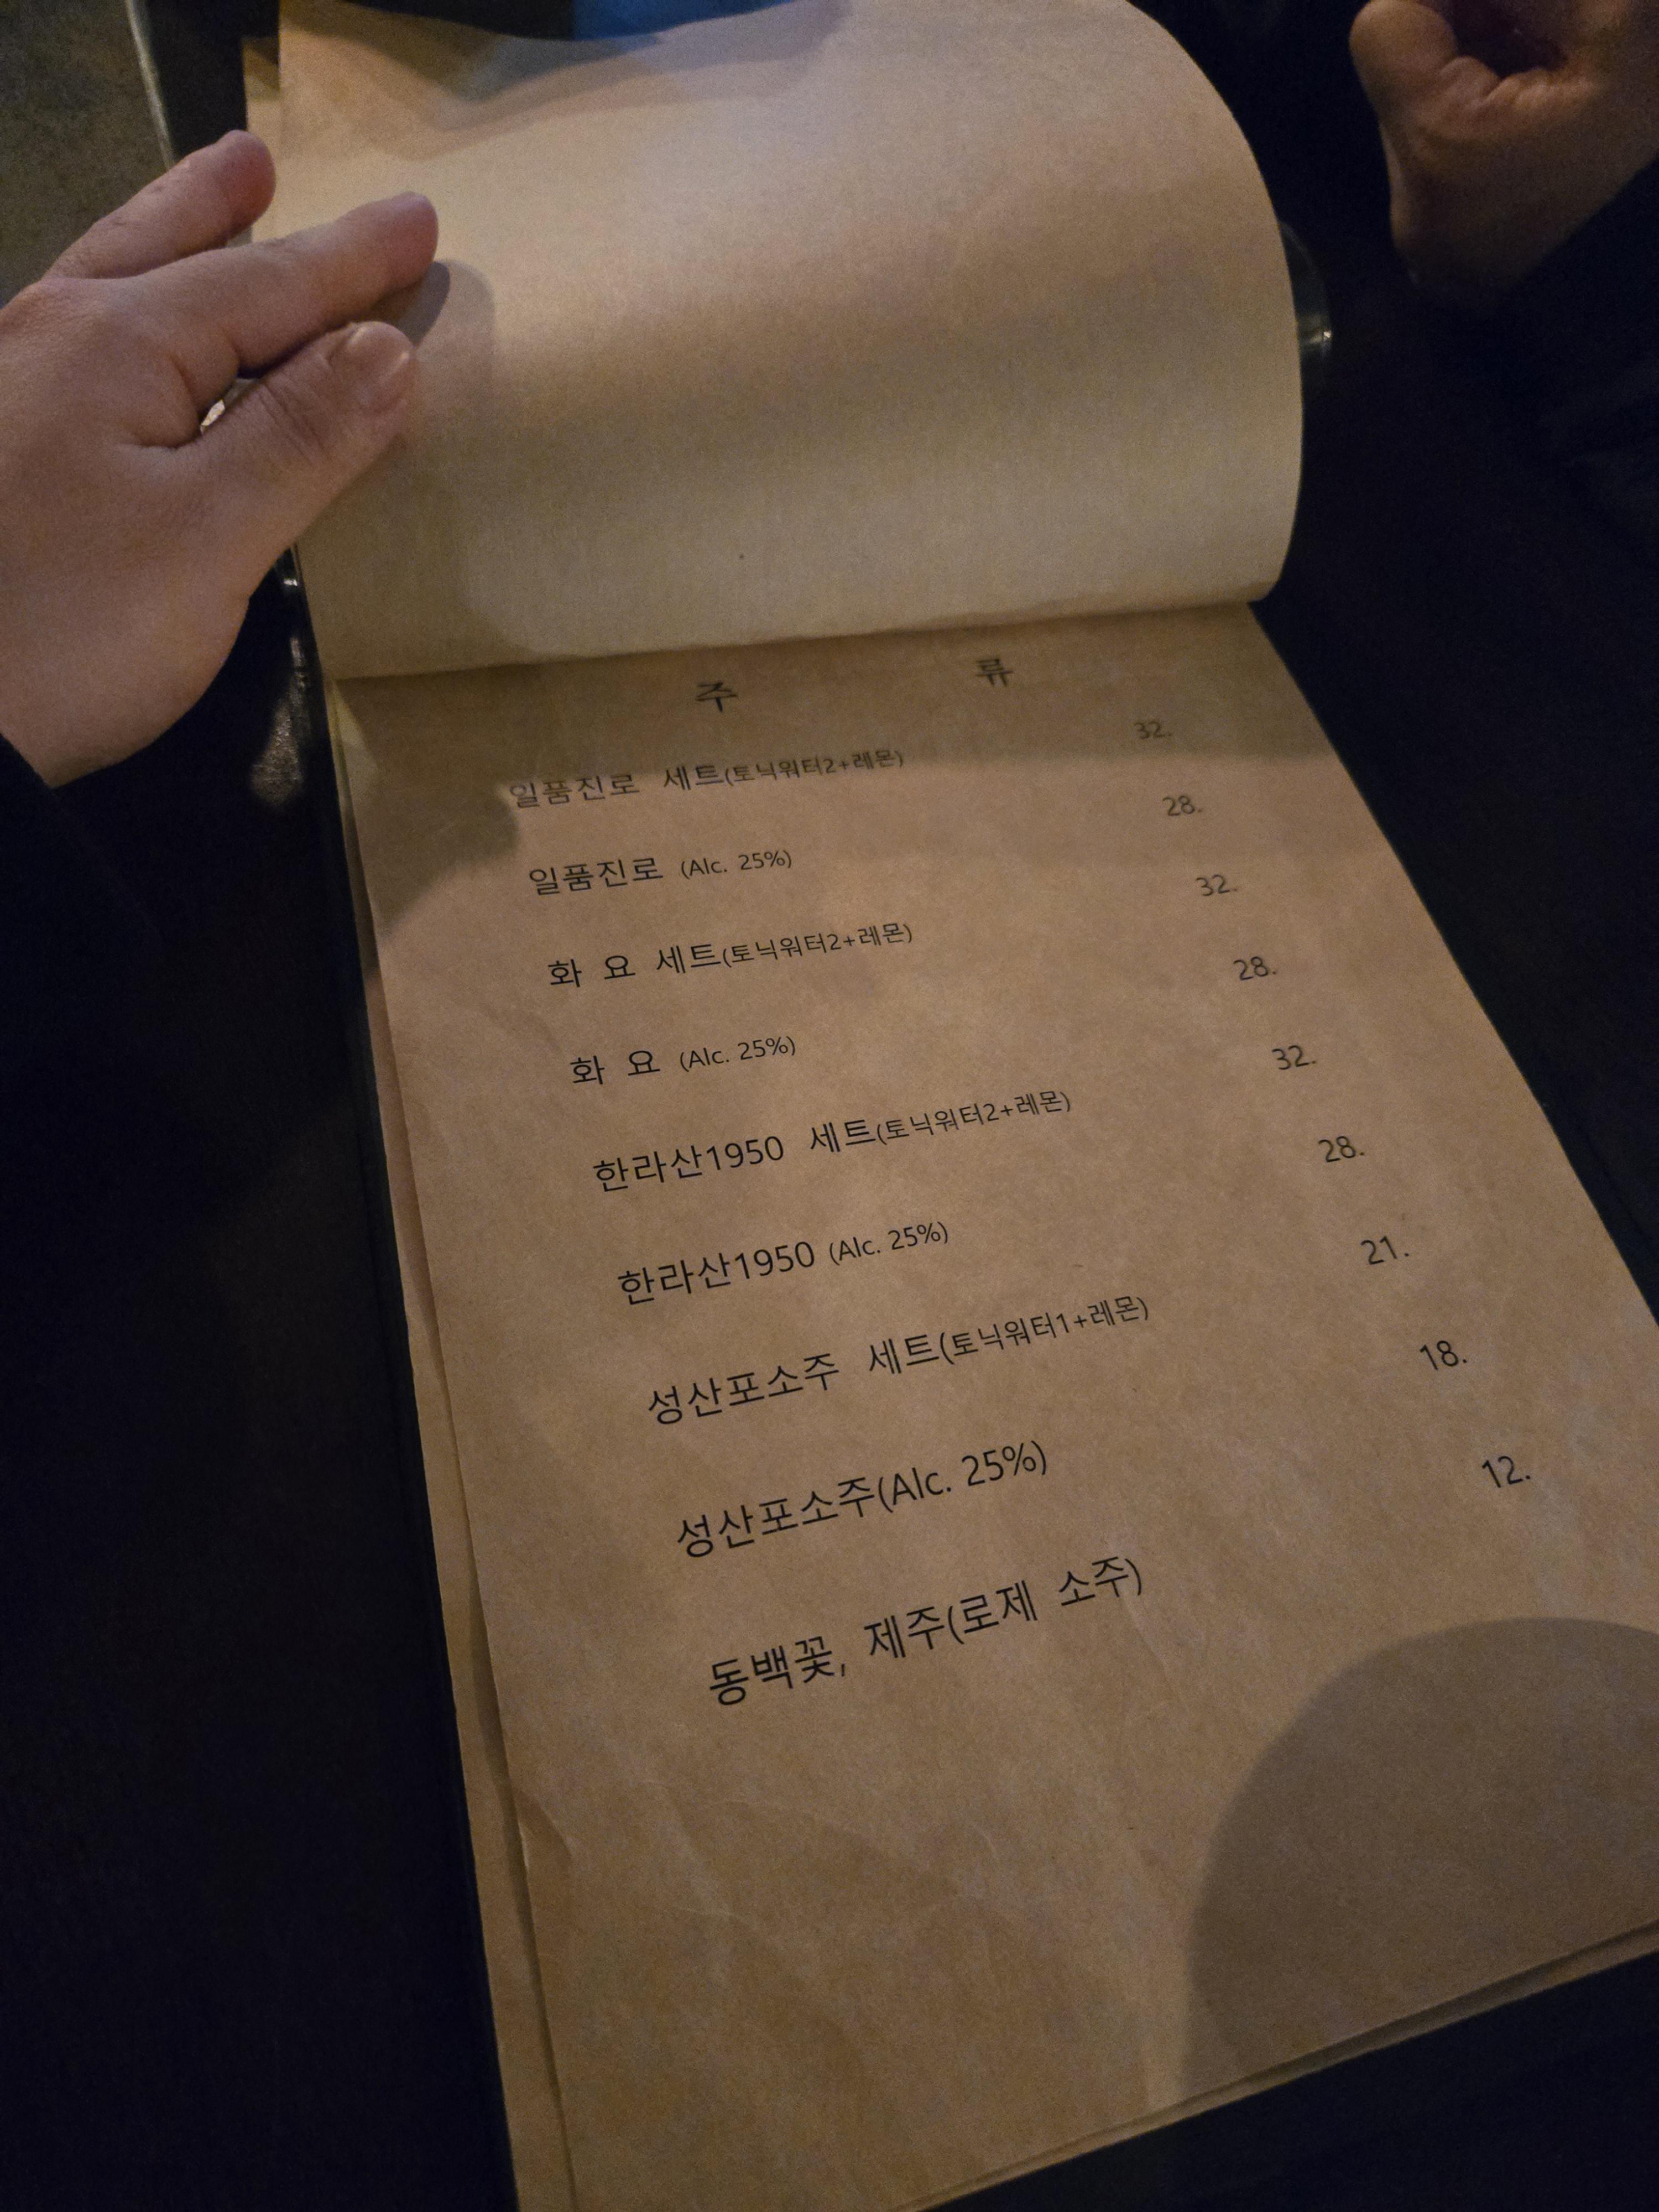 주 류
일품진로 세트(토닉워터2+레몬) 32.
일품진로 (Alc. 25%) 28.
화 요 세트(토닉워터2+레몬) 32.
화 요 (Alc. 25%) 28.
한라산1950 세트(토닉워터2+레몬) 32.
한라산1950 (Alc. 25%) 28.
성산포소주 세트(토닉워터1+레몬) 21.
성산포소주(Alc. 25%) 18.
동백꽃, 제주(로제 소주) 12.